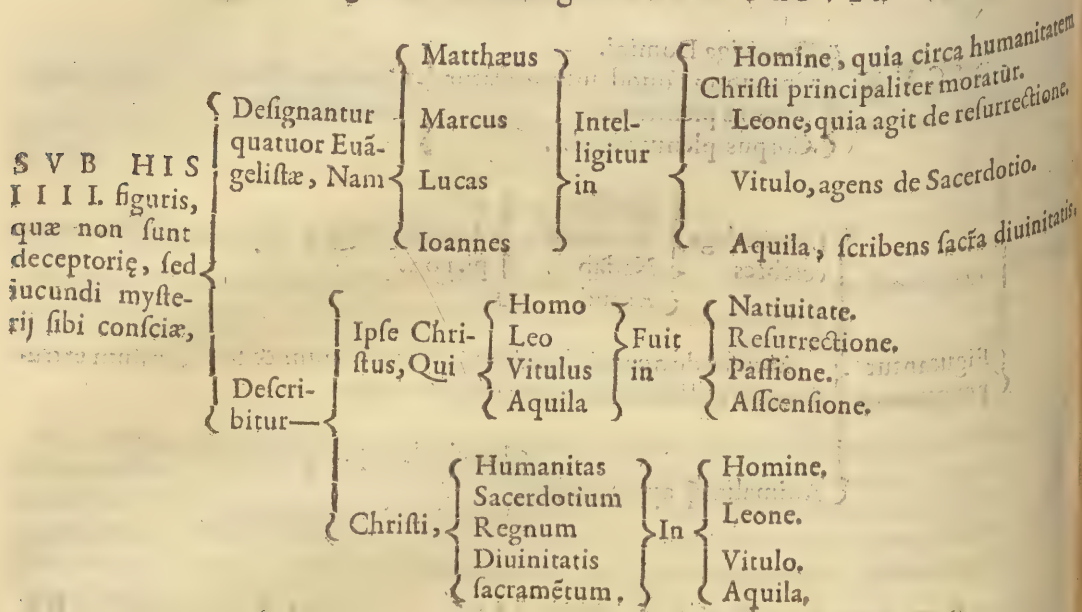 SVB HIS
IIII. figuris,
quæ non ſunt
deceptorię, ſed
iucundi myſte-
rij ſibi conſciæ,
Deſignantur
quatuor Euã-
geliſtæ, Nam
Matthæus
Marcus
Lucas
Ioannes
Intel-
ligitur
in
Homine, quia circa humanitatem
Chriſti principaliter moratur.
Leone, quia agit de reſurrectione.
Vitulo, agens de Sacerdotio.
Aquila, ſcribens ſacra diuinitatis.
Deſcri-
bitur—
Ipſe Chri-
ſtus, Qui
Homo
Leo
Vitulus
Aquila
Fuit
in
Natiuitate.
Reſurrectione.
Paſſione.
Aſſcenſione.
Chriſti,
Humanitas
Sacerdotium
Regnum
Diuinitatis
ſacramẽtum,
In
Homine,
Leone.
Vitulo,
Aquila,